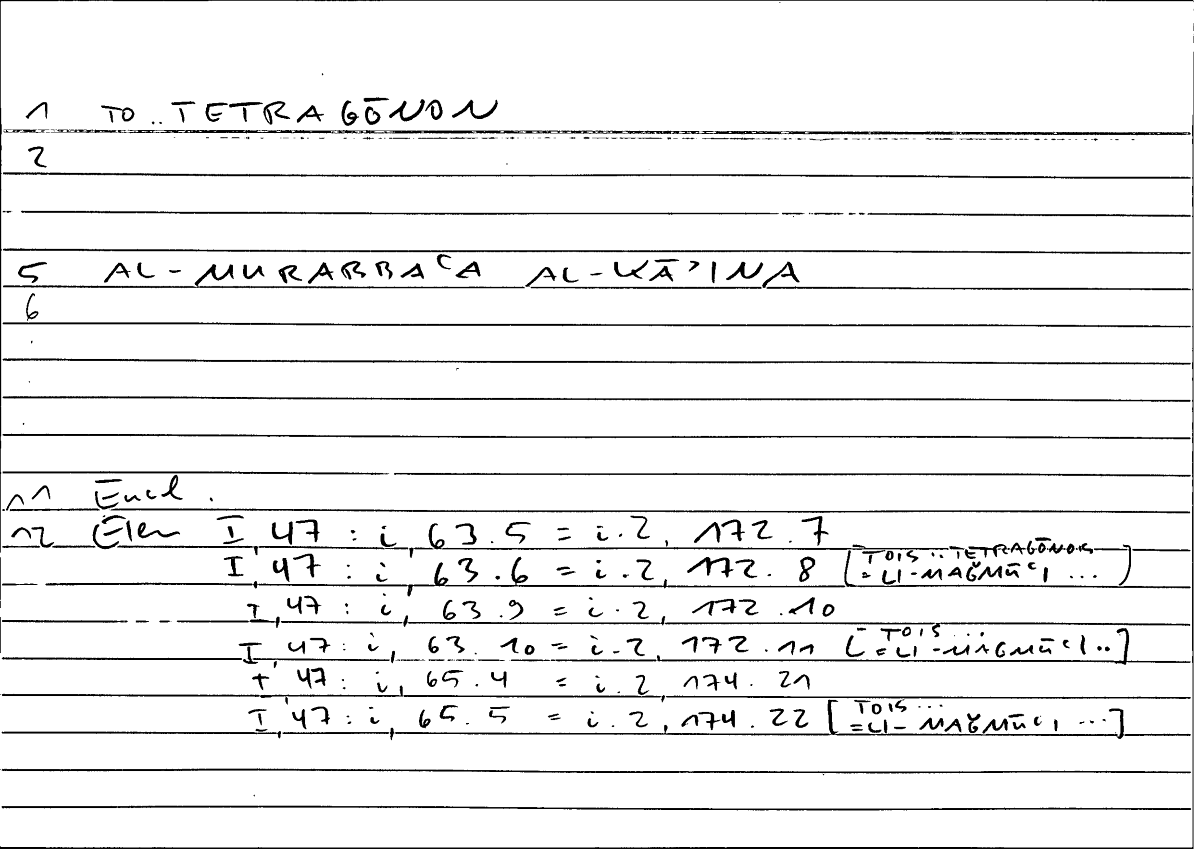 1 TO .. TETRAGŌNON
2
5 AL-MURARBAʿA AL-KĀʾINA
6
11 Eucl.
12 Elem I, 47 : i, 63.5 = i.2, 172.7
I, 47 : i, 63.6 = i.2, 172.8 [TOIS .. TETRAGŌNOIS
= LI-MAǦMŪʿI ...]
I, 47 : i, 63.9 = i.2, 172.10
I, 47 : i, 63.10 = i.2, 172.11 [TOIS ...
= LI-MAGMŪʿI ..]
I, 47 : i, 65.4 = i.2, 174.21
I, 47 : i, 65.5 = i.2, 174.22 [TOIS ...
= LI-MAǦMŪʿI ...]